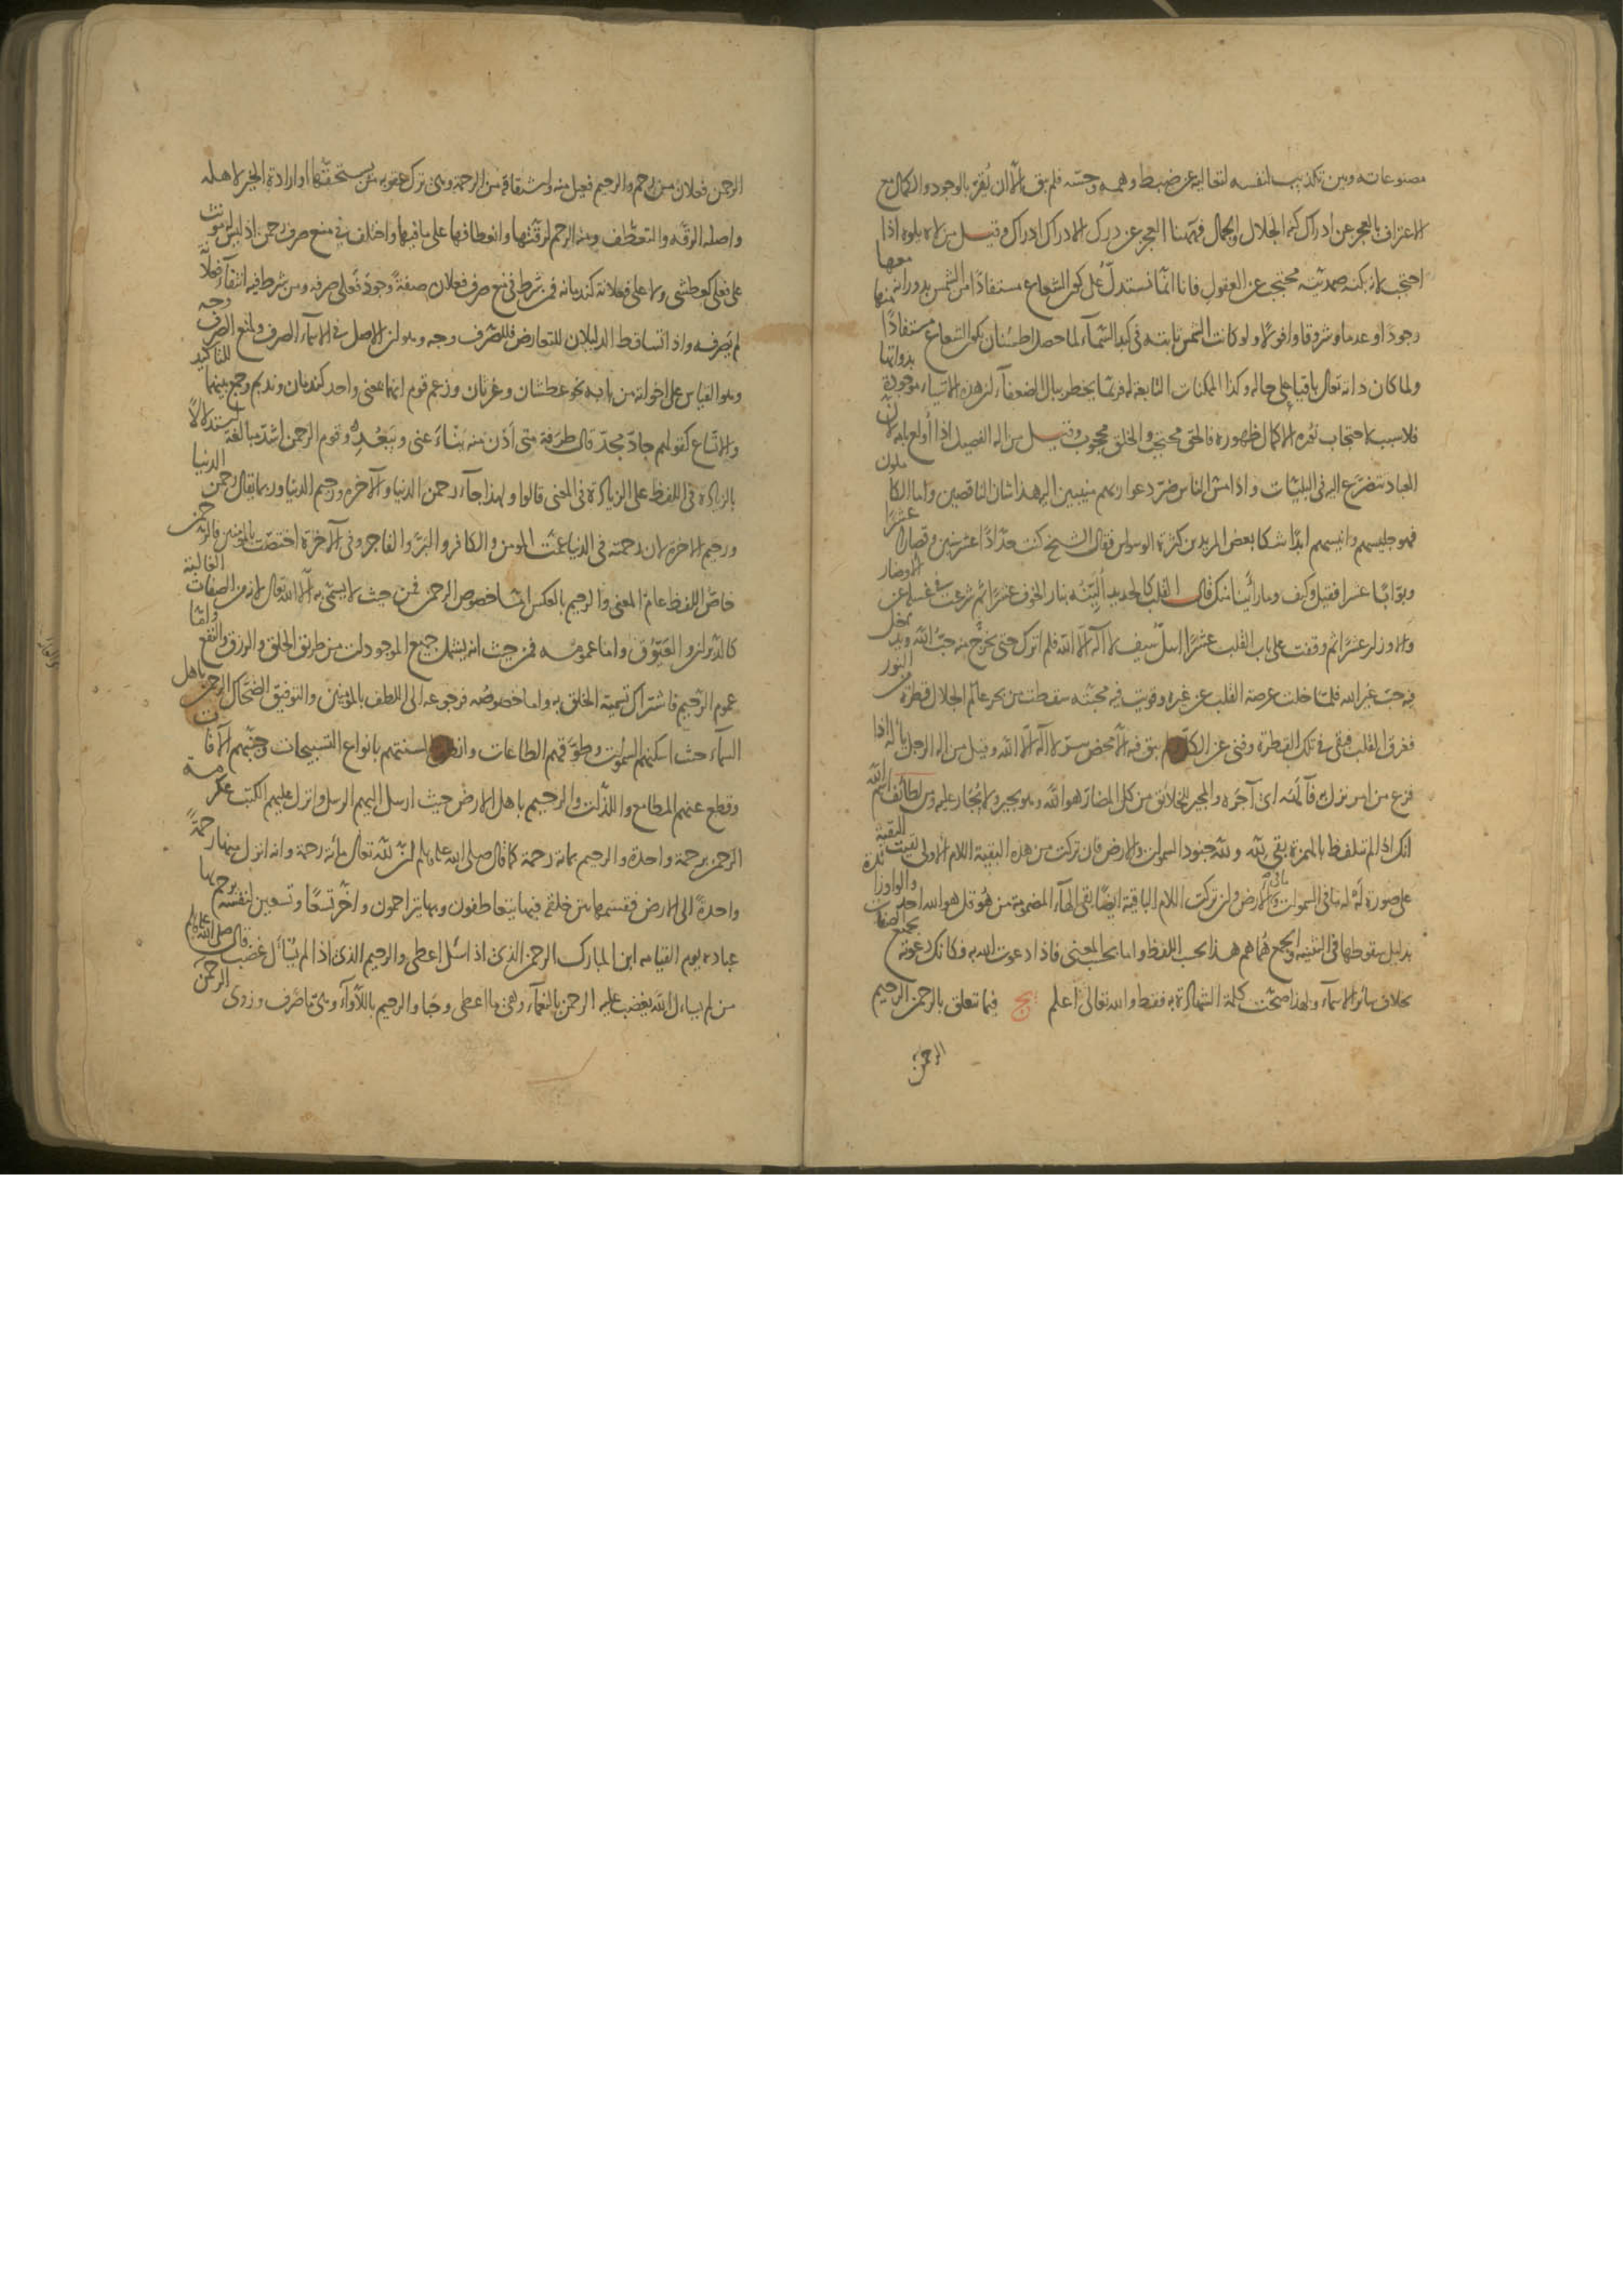 مصنوعاته وبين تكذيب لنفسه لتعاليه عن ضبط وهمه وحسه فلم يبق الا ان يقر بالوجود والكمال مع
الاعتراف بالعجز عن ادراك كنه الجلال والجمال فههنا العجز عن درك الادراك ادراك وقيل من لاه يلوه اذا
احتجب لانه بكنه صمديته محتجب عن العقول فانا انما نستدل على كون الشعاع مستفادا من الشمس بدورانه معها
وجودا وعدما وشروقا وافولا ولو كانت الشمس ثابتة في كبد السماء لما حصل اطمئنان بكون الشعاع مستفادا منها
ولما كان ذاته تعالى باقيا على حاله وكذا الممكنات التابعة له فربما يخطر ببال الضعفاء ان هذه الاشياء موجودة بذواتها
فلا سبب لاحتجاب نوره الا كمال ظهوره فالحق محتجب والخلق محجوب وقيل من اله الفصيل اذا اولع بامه لان
العباد تتضرع اليه في البليات واذا مس الناس ضر دعوا ربهم منيبين اليه هذا شان الناقصين واما الكاملون
فهو جليسهم وانيسهم ابدا شكا بعض المريدين كثرة الوسواس فقال الشيخ كنت حدادا عشر سنين وقصارا عشرا
وبوابا عشرا فقيل وكيف وما رأينا منك قال القلب كالحديد ألينته بنار الخوف عشرا ثم شرعت في غسله عن الاوضار
والاوزار عشرا ثم وقفت على باب القلب عشرا اسل سيف لا اله الا الله فلم اترك حتى يخرج منه حب الله ويدخل
فيه حب غير الله فلما خلت عرصة القلب عن غيره وقويت فيه محبته سقطت من بحر عالم الجلال قطرة من النور
فغرق القلب فبقي في تلك القطرة وفنى عن الكل ولم يبق فيه الا محض سر لا اله الا الله وقيل من اله الرجل يأله اذا
فزع من امر نزل به فآلهه اي آجره والمجير للخلائق من كل المضار هو الله وهو يجير ولا يجار عليه ومن لطائف اسم الله
انك اذا لم تتلفظ بالهمزة بقي لله ولله جنود السموات والارض فان تركت من هذه البقية اللام الاولى بقيت البقية
على صورة له له ما في السموات وما في الارض وان تركت اللام الباقية ايضا بقي الهاء المضمومة من هو قل هو الله احد والواو زائدة
بدليل سقوطها في التثنية والجمع هما هم هذا بحسب اللفظ واما بحسب المعنى فاذا دعوت الله به فكانك دعوته بجميع الصفات
بخلاف سائر الاسماء ولهذا صحت كلمة الشهادة به فقط والله تعالى اعلم فيما تتعلق بالرحمن الرحيم
الرحمن
الرحمن فعلان من رحم والرحيم فعيل منه واشتقاقه من الرحمة وهي ترك عقوبة من يستحقها او ارادة الخير لاهله
واصله الرقة والتعطف ومنه الرحم لرقتها وانعطافها على ما فيها واختلف في منع صرف رحمن اذ ليس له مؤنث
على فعلى كعطشى ولا على فعلانة كندمانة فمن شرط في منع صرف فعلان صفة وجود فعلى صرفه ومن شرط فيه انتفاء فعلانة
لم يصرفه واذا تساقط الدليلان للتعارض فللصرف وجه وهو ان الاصل في الاسماء الصرف ولمنع الصرف وجه
وهو القياس على اخواته من بابه نحو عطشان وغرثان وزعم قوم انهما بمعنى واحد كندمان ونديم وجمع بينهما للتاكيد
والاتساع كقولهم جاد مجد قال طرفة متى أدن منه ينأ عني ويبعد وقوم الرحمن اشد مبالغة استدلالا
بالزيادة في اللفظ على الزيادة في المعنى قالوا ولهذا جاء رحمن الدنيا والآخرة ورحيم الدنيا وربما يقال رحمن الدنيا
ورحيم الاخرة لان رحمته في الدنيا عمت المومن والكافر والبر والفاجر وفي الآخرة اختصت بالمؤمنين فالرحمن
خاص اللفظ عام المعنى والرحيم بالعكس اما خصوص الرحمن فمن حيث لا يسمى به الا الله تعالى لانه من الصفات الغالبة
كالدبران والعيوق واما عمومه فمن حيث انه يشمل جميع الموجودات من طريق الخلق والرزق والنفع واما
عموم الرحيم فاشتراك تسمية الخلق به واما خصوصه فرجوعه الى اللطف بالمؤمنين والتوفيق الضحاك الرحمن باهل
السماء حيث اسكنهم السموات وطوقهم الطاعات وانطق السنتهم بانواع التسبيحات وجنبهم الآفات
وقطع عنهم المطامع واللذات والرحيم باهل الارض حيث ارسل اليهم الرسل وانزل عليهم الكتب عكرمة
الرحمن برحمة واحدة والرحيم بمائة رحمة كما قال صلى الله عليه وسلم ان لله تعالى مائة رحمة وانه انزل منها رحمة
واحدة الى الارض فقسمها بين خلقه فبها يتعاطفون وبها يتراحمون واخر تسعا وتسعين لنفسه يرحم بها
عباده يوم القيامة ابن المبارك الرحمن الذي اذا سئل اعطى والرحيم الذي اذا لم يسأل غضب قال صلى الله عليه وسلم
من لم يسأل الله يغضب عليه الرحمن بالنعماء وهي ما اعطى وحبا والرحيم باللأواء وهي ما صرف وزوى الرحمن